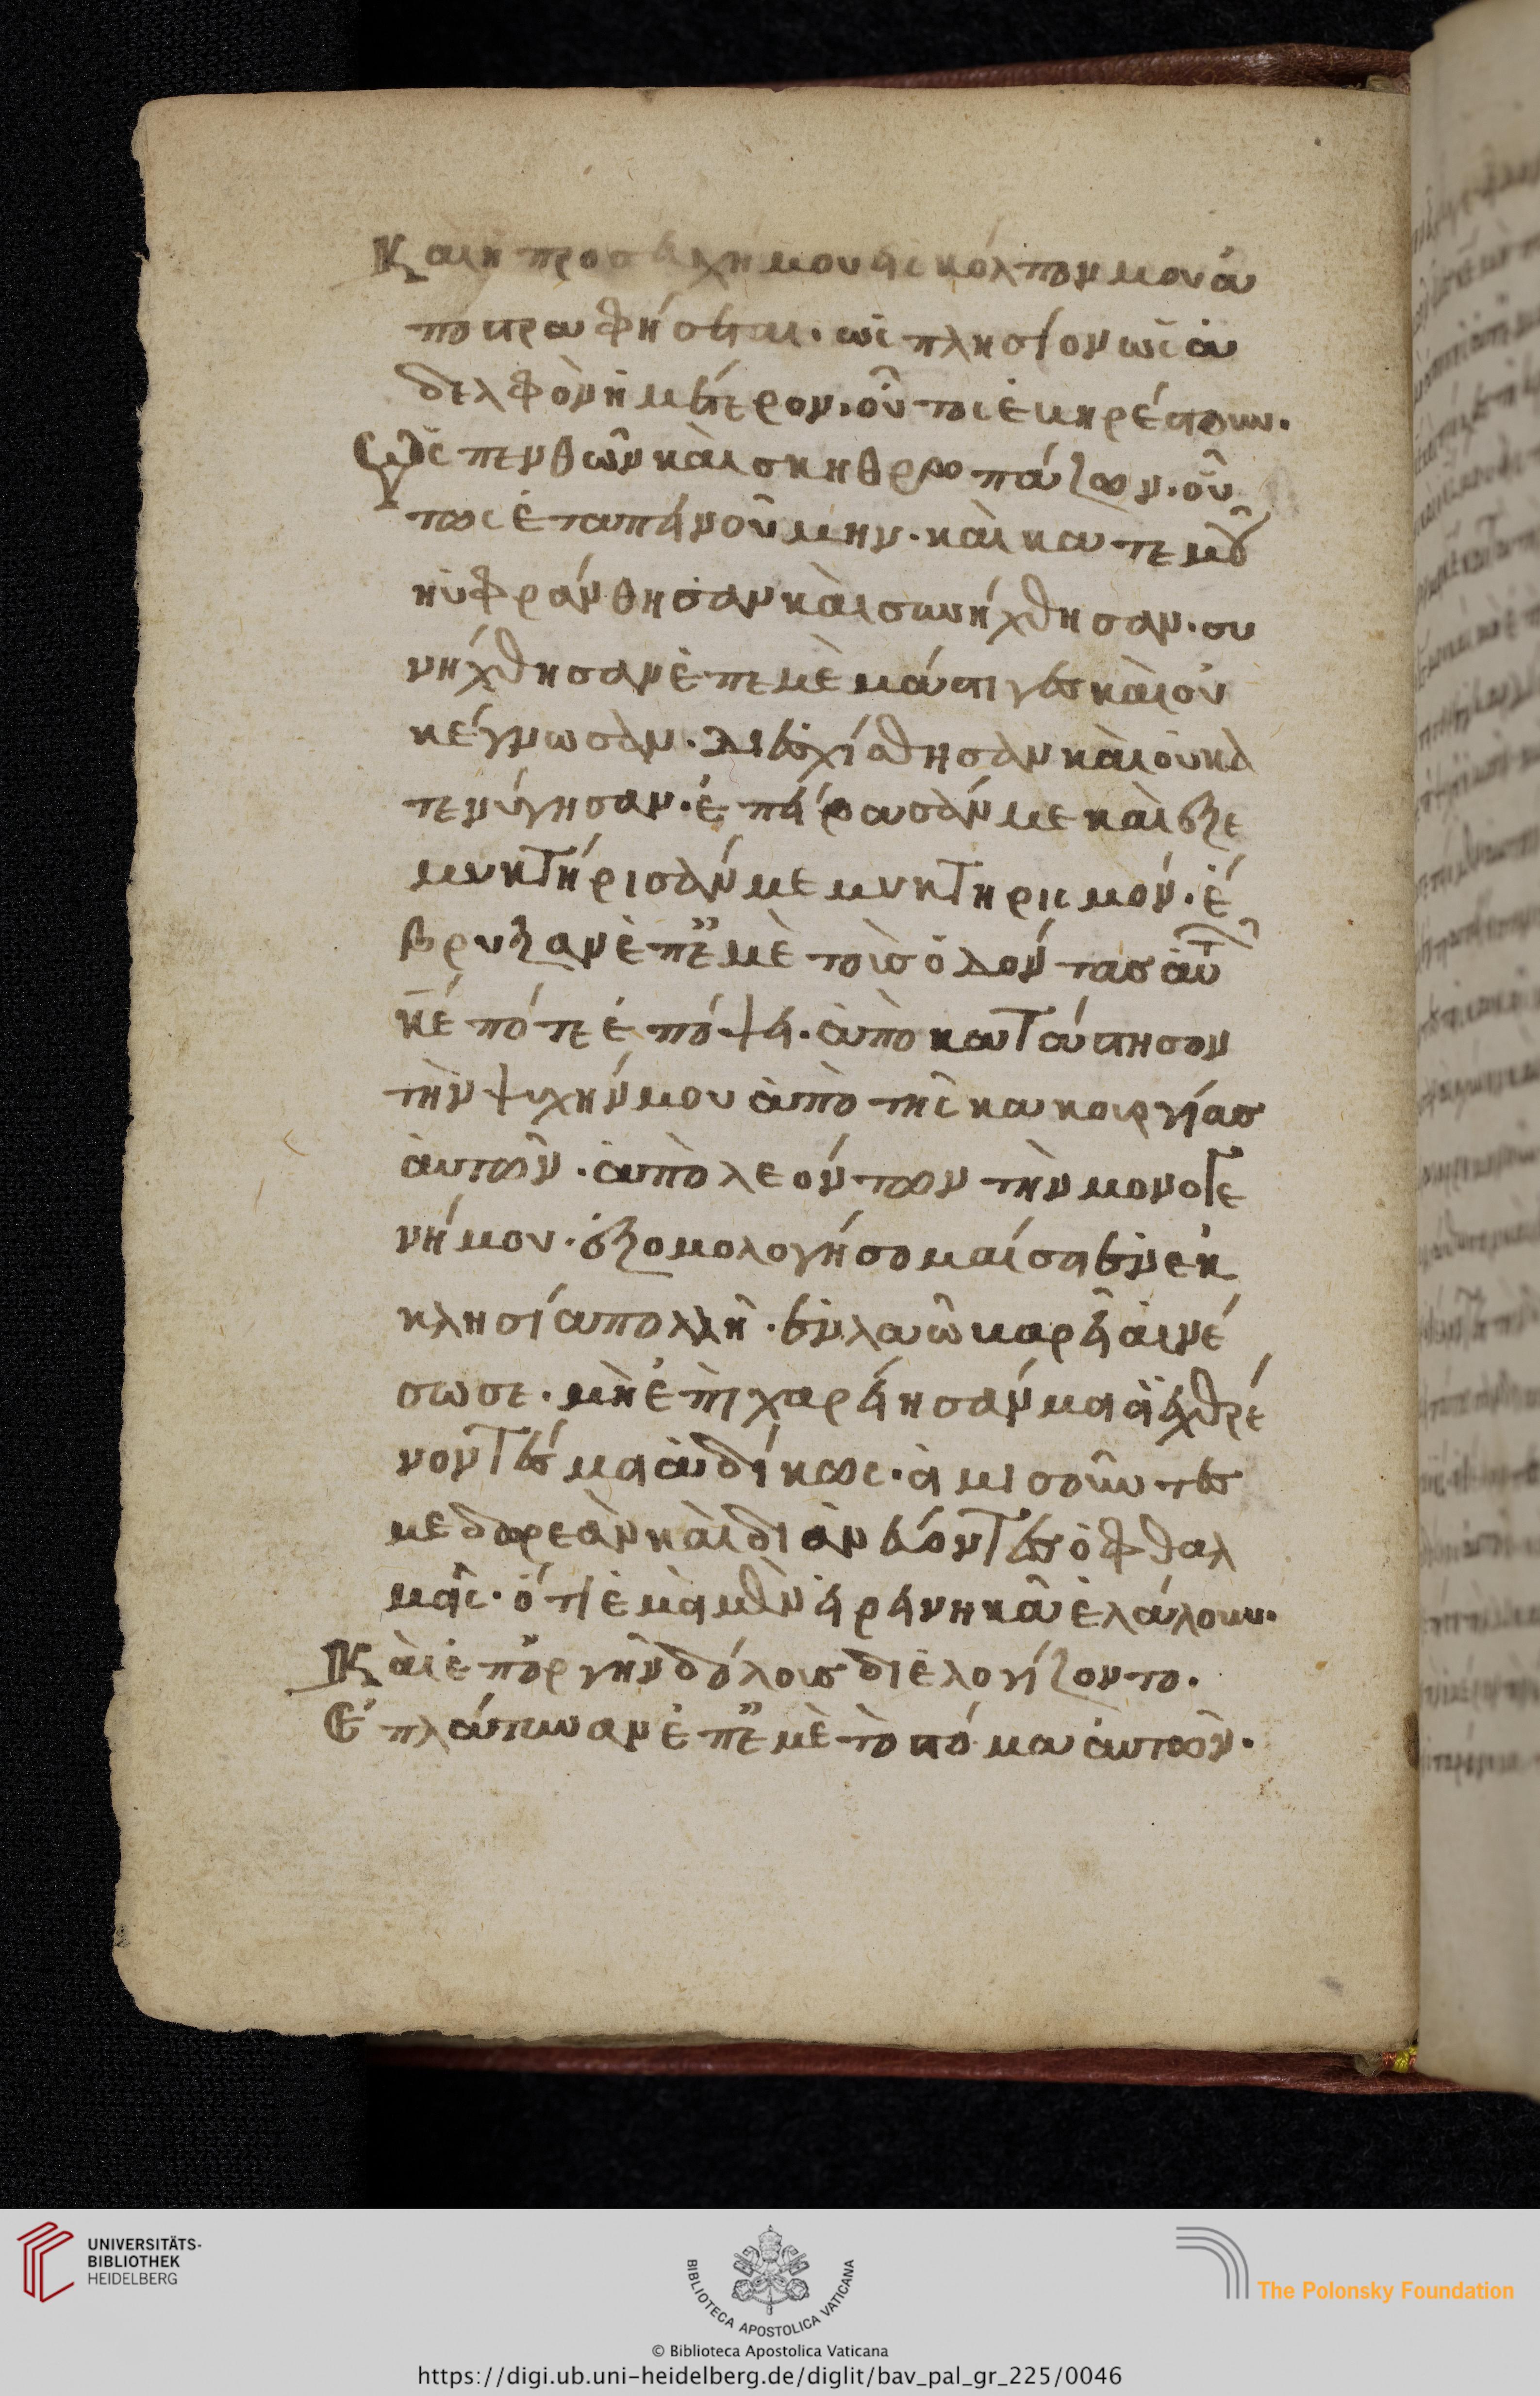 Και η προσευχή μου εις κόλπον μου ἀ
ποστραφήσεται. ὡς πλησίον ὡς ἀ
δελφὸν ἡμέτερον. οὕτος ἐυηρέστουν.
Ὡς πενθῶν καὶ σκηθρωπάζων. οὕ
τως ἐταπεινούμην. καὶ κατεμοῦ
ηὐφράνθησαν καὶ συνήχθησαν. συ
νήχθησαν ἐπεμὲ μάστιγες καὶ οὐ
κέγνωσαν. διεσχίσθησαν καὶ οὐκα
τενύγησαν. ἐπείρασάν με καὶ ἐξε
μυκτήρισάν με μυκτηρισμόν. ἔ
βρυξαν ἐπ' ἐμὲ τοὺσ ὀδόντασ αὐτῶν
κ̅ε̅ πότε ἐπόψει. ἀποκατάστησον
τὴν ψυχήν μου ἀπὸ τῆς κακουργίασ
ἀυτῶν. ἀπὸ λεόντων τὴν μονογε
νή μου. ἐξομολογήσομαί σοι ἐν ἐκ
κλησία πολλῆ. ἐν λαῶ βαρεῖ αἰνέ
σωσε. μὴ ἐπιχαρείησάν μοι οἱ ἐχθρέ
νοντές μοι ἀδίκως. οἱ μισοῦντες
με δορεὰν καὶ διανεύοντες ὀφθαλ
μοῖς. ὅτι ἐμοὶ μὲν εἰρηνηκὰ ἐλάλουν.
Καὶ ἐπόργὴν δόλουσ διελογίζοντο.
Ἐπλάτυναν ἐπ' ἐμὲ τὸ στόμα ἀυτῶν.
UNIVERSITÄTS-
BIBLIOTHEK
HEIDELBERG
BIBLIOTECA APOSTOLICA VATICANA
The Polonsky Foundation
© Biblioteca Apostolica Vaticana
https://digi.ub.uni-heidelberg.de/diglit/bav_pal_gr_225/0046